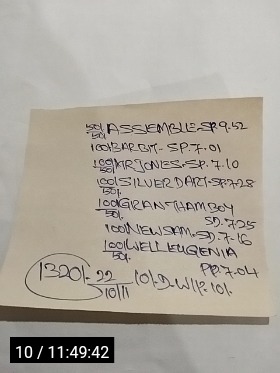 50/50/. ASSEMBLE-SP.9.52
100/ BARBIT- SP.7.01
100/ MRJONES-SP.7.10
100/50/. SILVERDART-SP.7.28
100/50/. GRANTHAMBOY
SD.7.25
100/ NEWSAM-SD.7-16
100/50/. WELLEUGENIA
PP.7.04
1320/. 22
10/11 10/.D.W/P.10/.
10 / 11:49:42